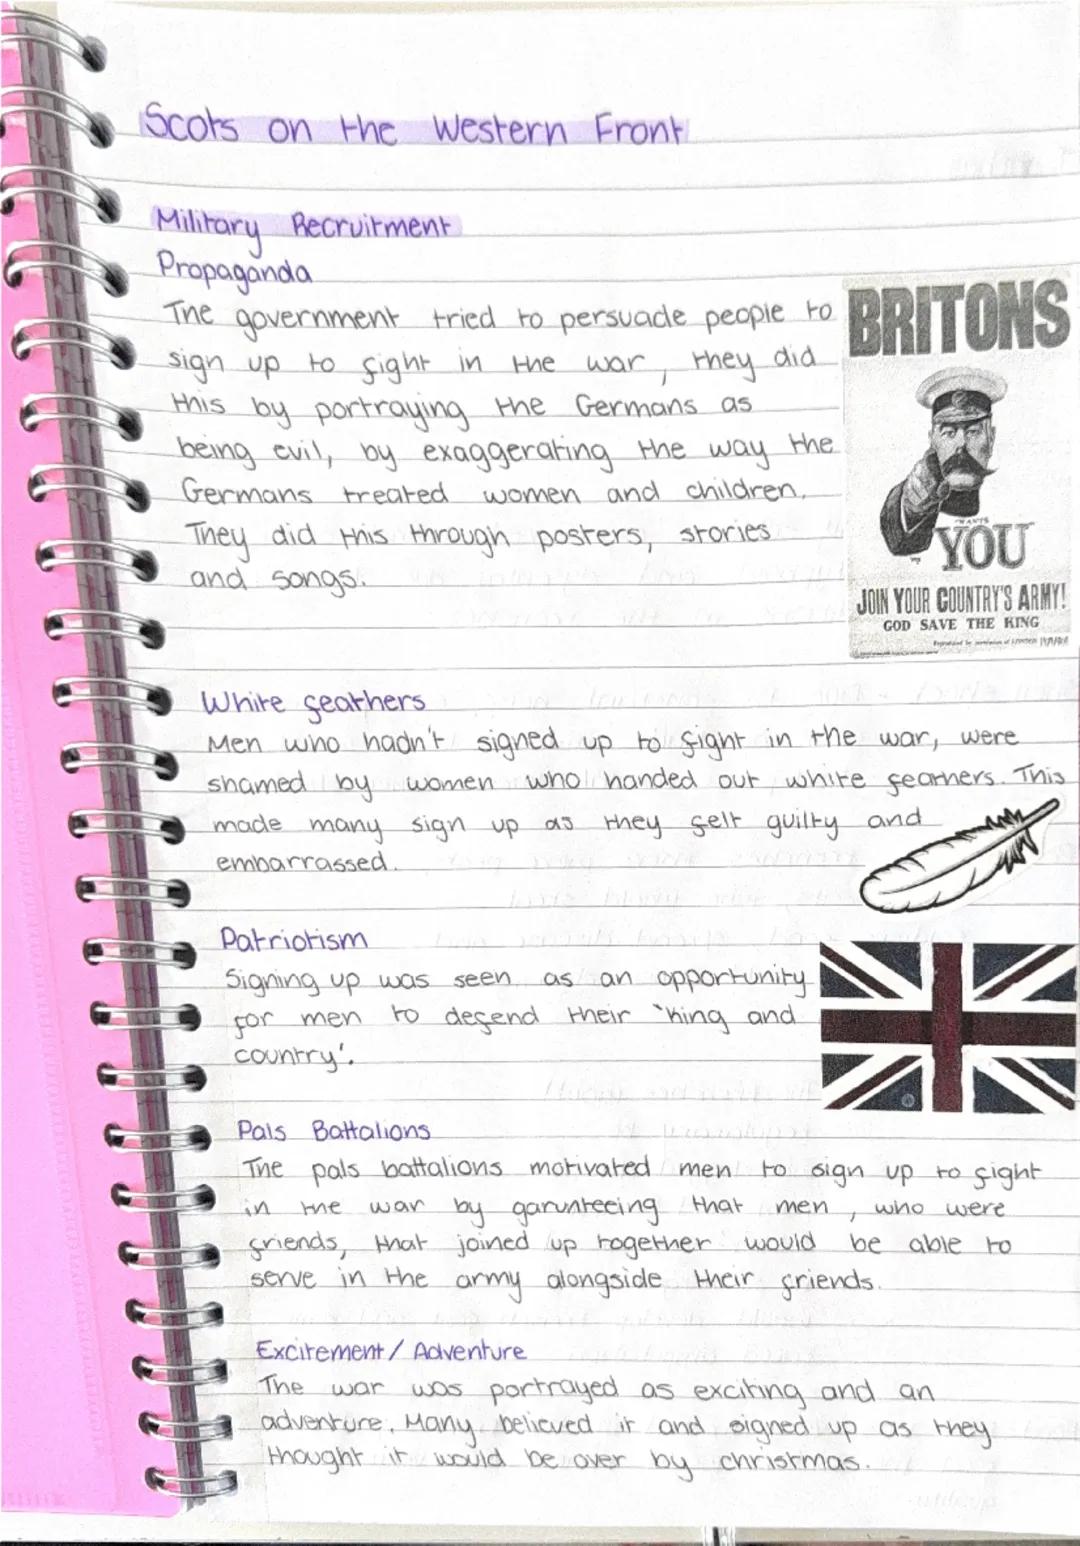 Scots on the Western Front
Military Recruitment
Propaganda
The government tried to persuade people to
sign up to fight in the war, they did
this by portraying the Germans as
being evil, by exaggerating the way the
Germans treated women and children.
They did this through posters, stories
and songs.
BRITONS
"WANTS
YOU
JOIN YOUR COUNTRY'S ARMY!
GOD SAVE THE KING
Reproduced by permission of LONDON OPINION
White feathers
Men who hadn't signed up to fight in the war, were
shamed by women who handed out white feathers. This
made many sign up as they felt guilty and
embarrassed.
Patriotism
Signing up was seen as an opportunity
for men to defend their 'king and
country'.
Pals Battalions
The pals battalions motivated men to sign up to fight
in the war by garunteeing that men, who were
friends, that joined up together would be able to
serve in the army alongside their friends.
Excitement/Adventure
The war was portrayed as exciting and an
adventure. Many believed it and signed up as they
thought it would be over by christmas.